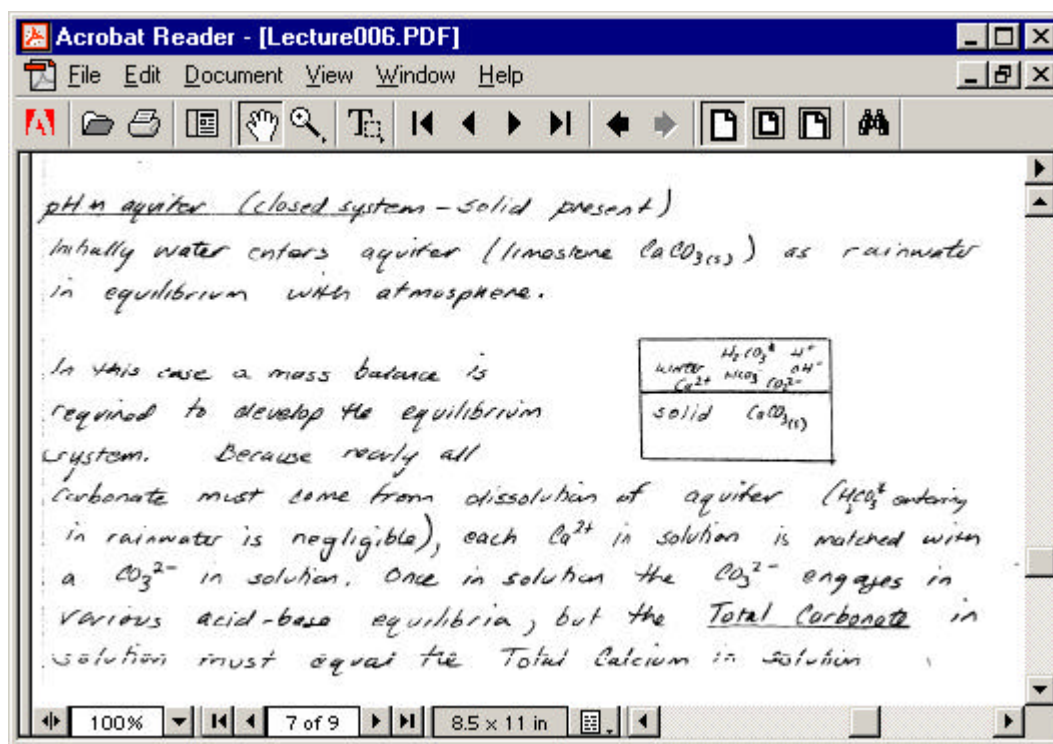 Acrobat Reader - [Lecture006.PDF]
File Edit Document View Window Help
pH in aquifer (closed system - solid present)
Initially water enters aquifer (limestone CaCO₃₍ₛ₎) as rainwater
in equilibrium with atmosphere.
In this case a mass balance is
required to develop the equilibrium
system. Because nearly all
water H₂CO₃* H⁺
Ca²⁺ HCO₃⁻ CO₃²⁻ OH⁻
solid CaCO₃₍ₛ₎
Carbonate must come from dissolution of aquifer (H₂CO₃* entering
in rainwater is negligible), each Ca²⁺ in solution is matched with
a CO₃²⁻ in solution. Once in solution the CO₃²⁻ engages in
various acid-base equilibria, but the Total Carbonate in
solution must equal the Total Calcium in solution
100% 7 of 9 8.5 x 11 in